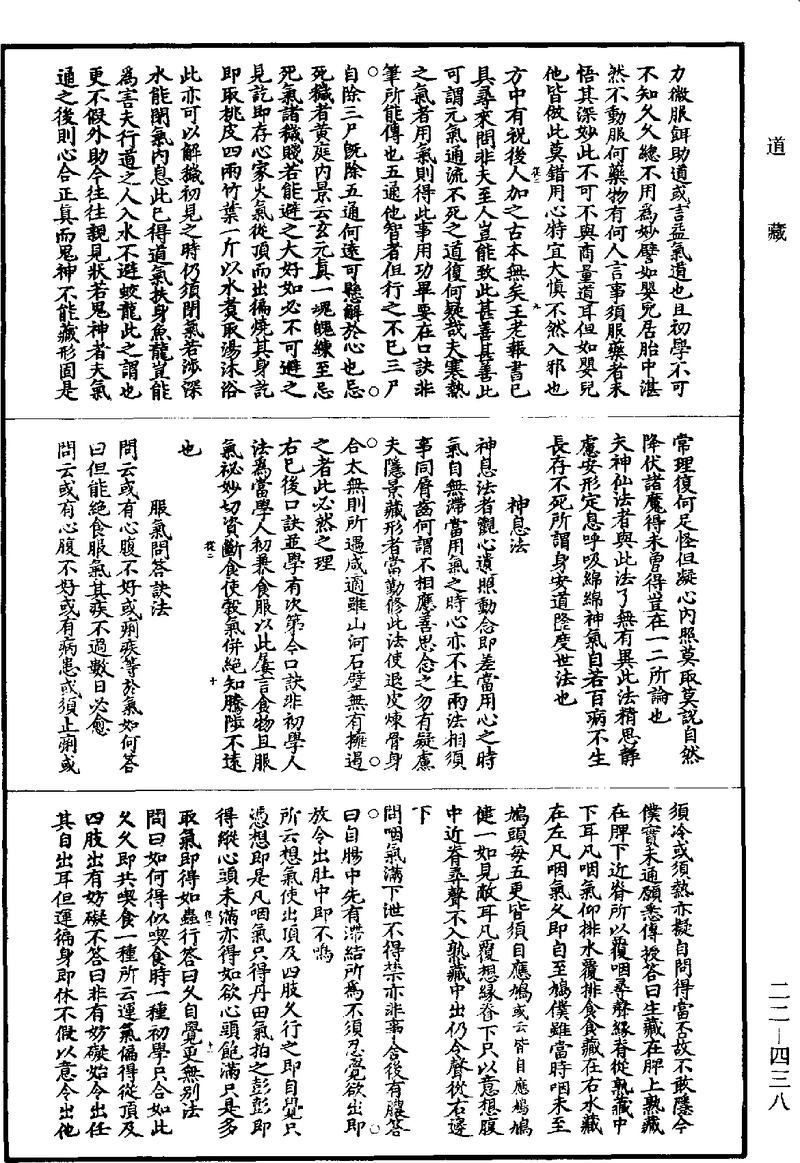 道藏
力微服餌助道或言益氣道也且初學不可
不知久久總不用爲妙譬如嬰兒居胎中湛
然不動服何藥物有何人言事須服藥者未
悟其深妙此不可不與商量道耳但如嬰兒
他皆倣此莫錯用心特宜大慎不然入邪也
方中有祝後人加之古本無矣王老報書已
具尋來問非夫至人豈能致此甚善甚善此
可謂元氣通流不死之道復何疑哉夫寒熱
之氣者用氣則得此事用功畢要在口訣非
筆所能傳也五通他智者但行之不已三尸
自除三尸旣除五通何遠可懸解於心也忌
死穢者黄庭內景云玄元真一魂魄練至忌
死氣諸穢賤若能避之大好如必不可避之
見訖即存心家火氣從頂而出徧燒其身訖
即取桃皮四兩竹葉一斤以水煑取湯沐浴
此亦可以解穢初見之時仍須閉氣若涉深
水能閉氣內息此已得道氣扶身魚龍豈能
爲害夫行道之人入水不避蛟龍此之謂也
更不假外助今往往親見狀若鬼神者夫氣
通之後則心合正真而鬼神不能藏形固是
常理復何足怪但凝心內照莫取莫說自然
降伏諸魔得未曾得豈在一二所論也
夫神仙法者與此法了無有異此法精思靜
慮安形定息呼吸綿綿神氣自若百病不生
長存不死所謂身安道隆度世法也
神息法
神息法者觀心遺照動念即差當用心之時
氣自無滯當用氣之時心亦不生兩法相須
事同脣齒何謂不相應善思念之勿有疑慮
夫隱景藏形者當勤修此法使退皮煉骨身
合太無則所遇咸適雖山河石壁無有擁遏
之者此必然之理
右已後口訣並學有次第今口訣非初學人
法爲當學人初兼食服以此屢言食物且服
氣祕妙切資斷食使穀氣併絕知騰陟不遠
也
服氣問答訣法
問云或有心腹不好或痢疾等於氣如何答
曰但能絕食服氣其疾不過數日必愈
問云或有心腹不好或有病患或須止痢或
須冷或須熱亦擬自問得當否故不敢隱今
僕實未通願悉傳授答曰生藏在脾上熟藏
在脾下近脊所以覆咽尋聲緣脊從熟藏中
下耳凡咽氣仰排水覆排食食藏在右水藏
在左凡咽氣久即自至鳩僕雖當時咽未至
鳩頭每五更皆須自應鳩或云皆自應鳩鳩
健一如見敵耳凡覆想緣脊下只以意想腹
中近脊尋聲不入熟藏中出仍令聲從右邊
下
問咽氣滿下泄不得禁亦非事合後有膿答
曰自腸中先有滯結所爲不須忍覺欲出即
放令出肚中即不鳴
所云想氣使出頂及四肢久行之即自覺只
憑想即是凡咽氣只得丹田氣拍之彭彭即
得縱心頭未滿亦得如欲心頭飽滿只是多
取氣即得如蟲行答曰久自覺更無別法
問曰如何得似喫食時一種初學只合如此
久久即共喫食一種所云運氣偏得從頂及
四肢出有妨礙不答曰非有妨礙始令出任
其自出耳但運徧身即休不假以意令出他
二二—四三八